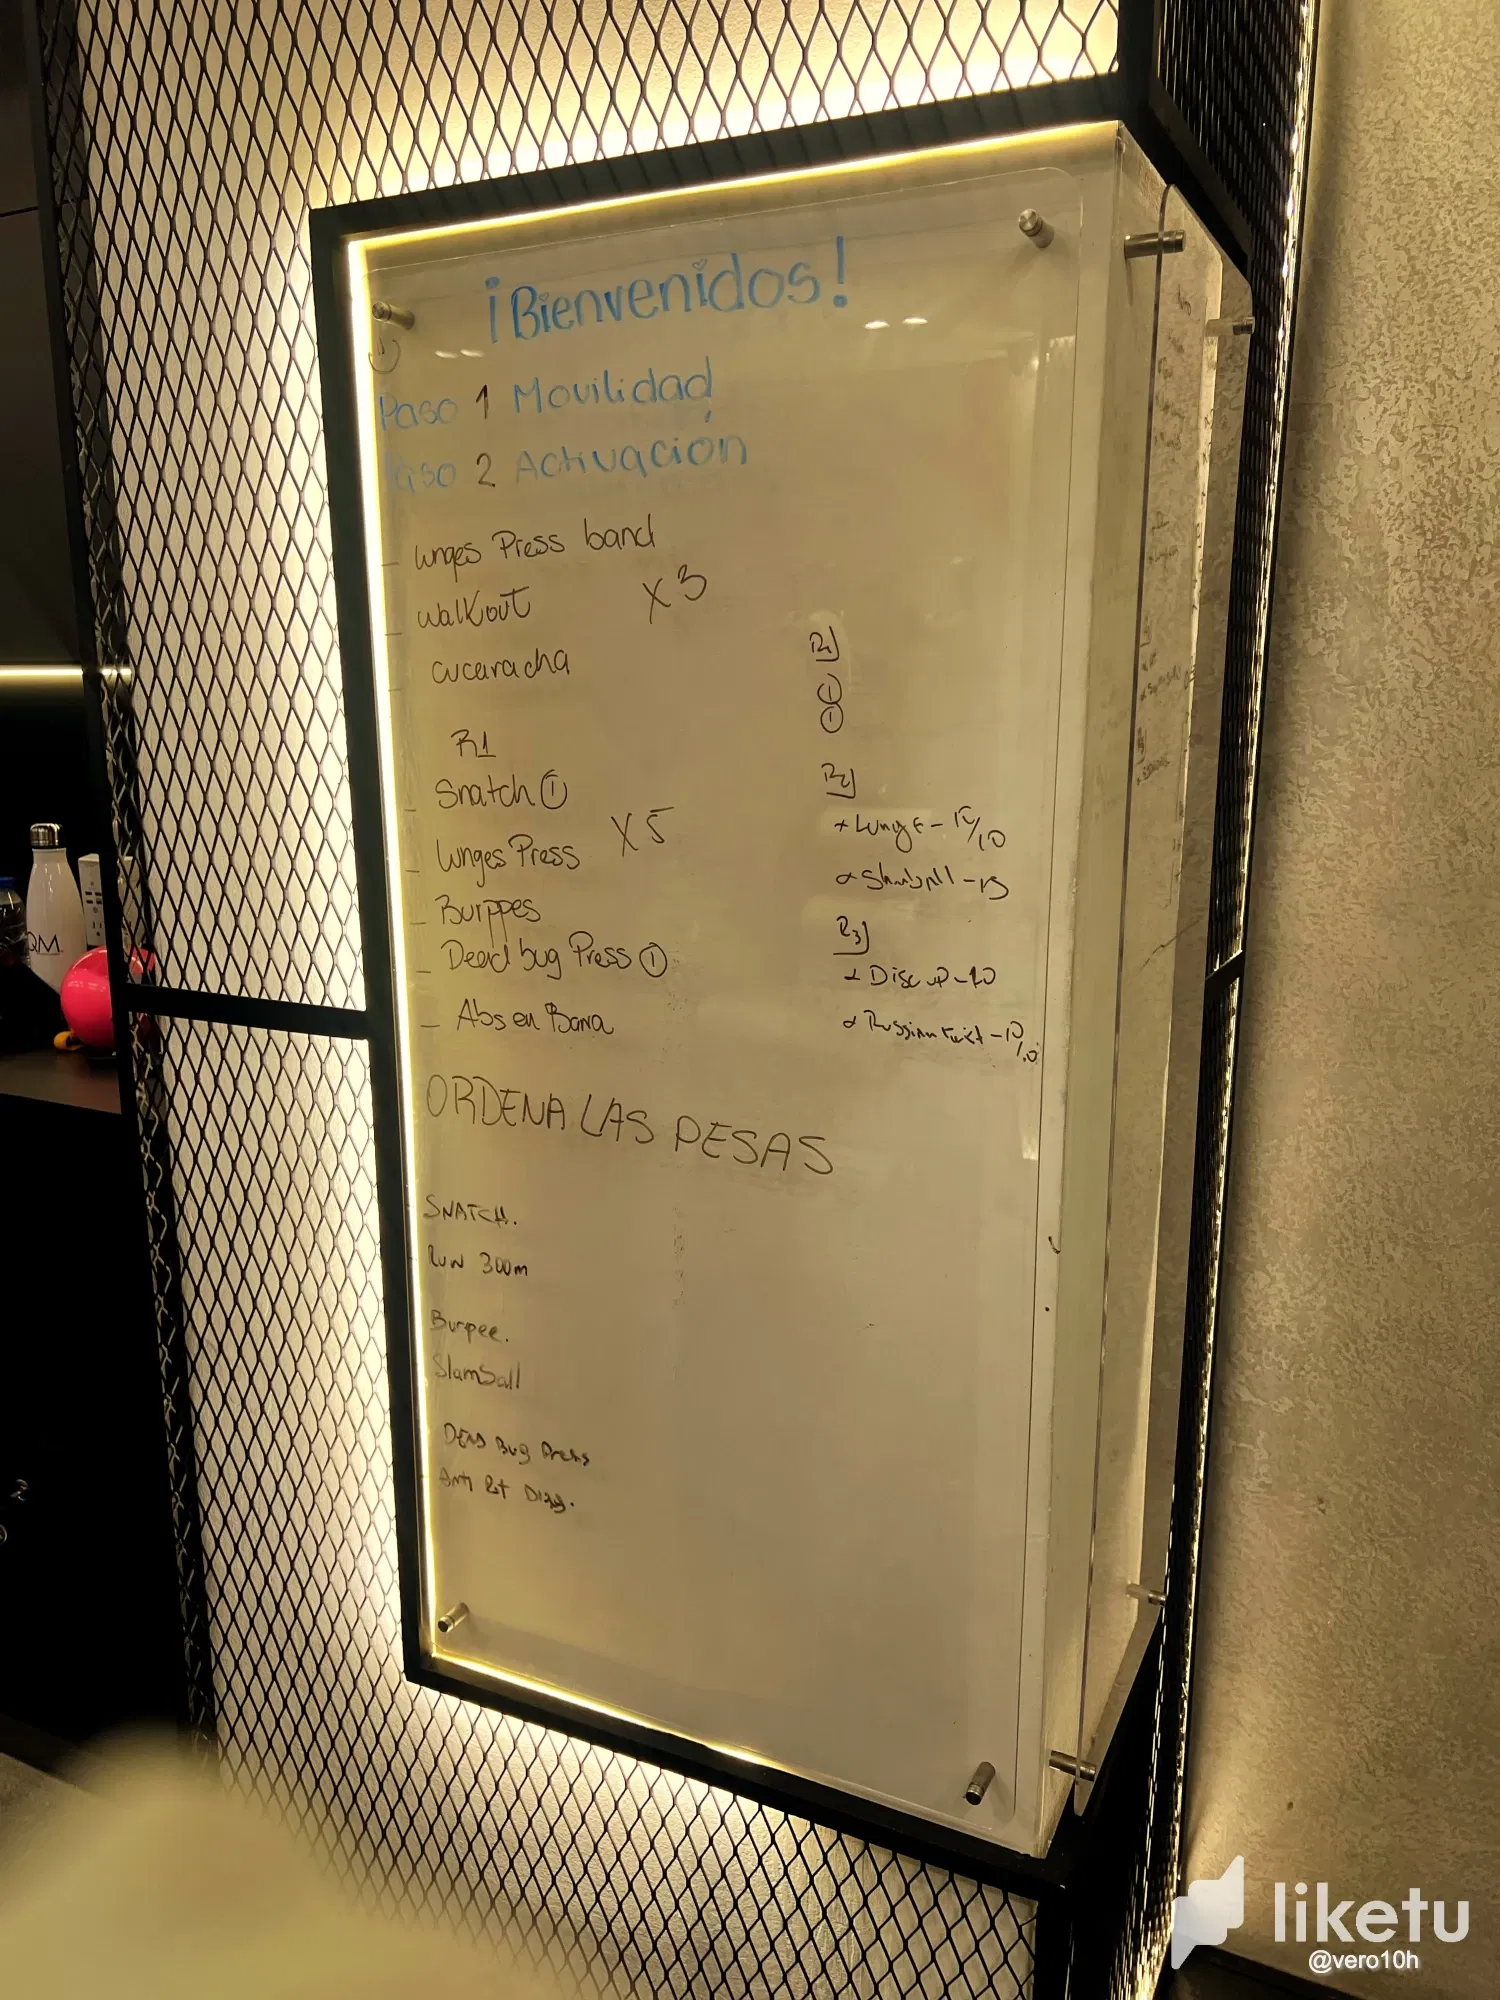 ¡Bienvenidos!
Paso 1 Movilidad
Paso 2 Activación
- Lunges Press band
- Walkout X3
- Cucaracha
R1
- Snatch ①
- Lunges Press X5
- Burppes
- Dead bug Press ①
- Abs en Barra
R1
①
①
R2
Lunge - 10/10
Slamball - 15
R3
Disc up - 10
Russian twist - 10/10
ORDENA LAS PESAS
SNATCH.
RUN 300m
Burpee.
Slamball
DEAD Bug Press
QM
liketu
@vero10h